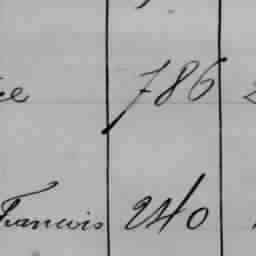 786
Francois 240